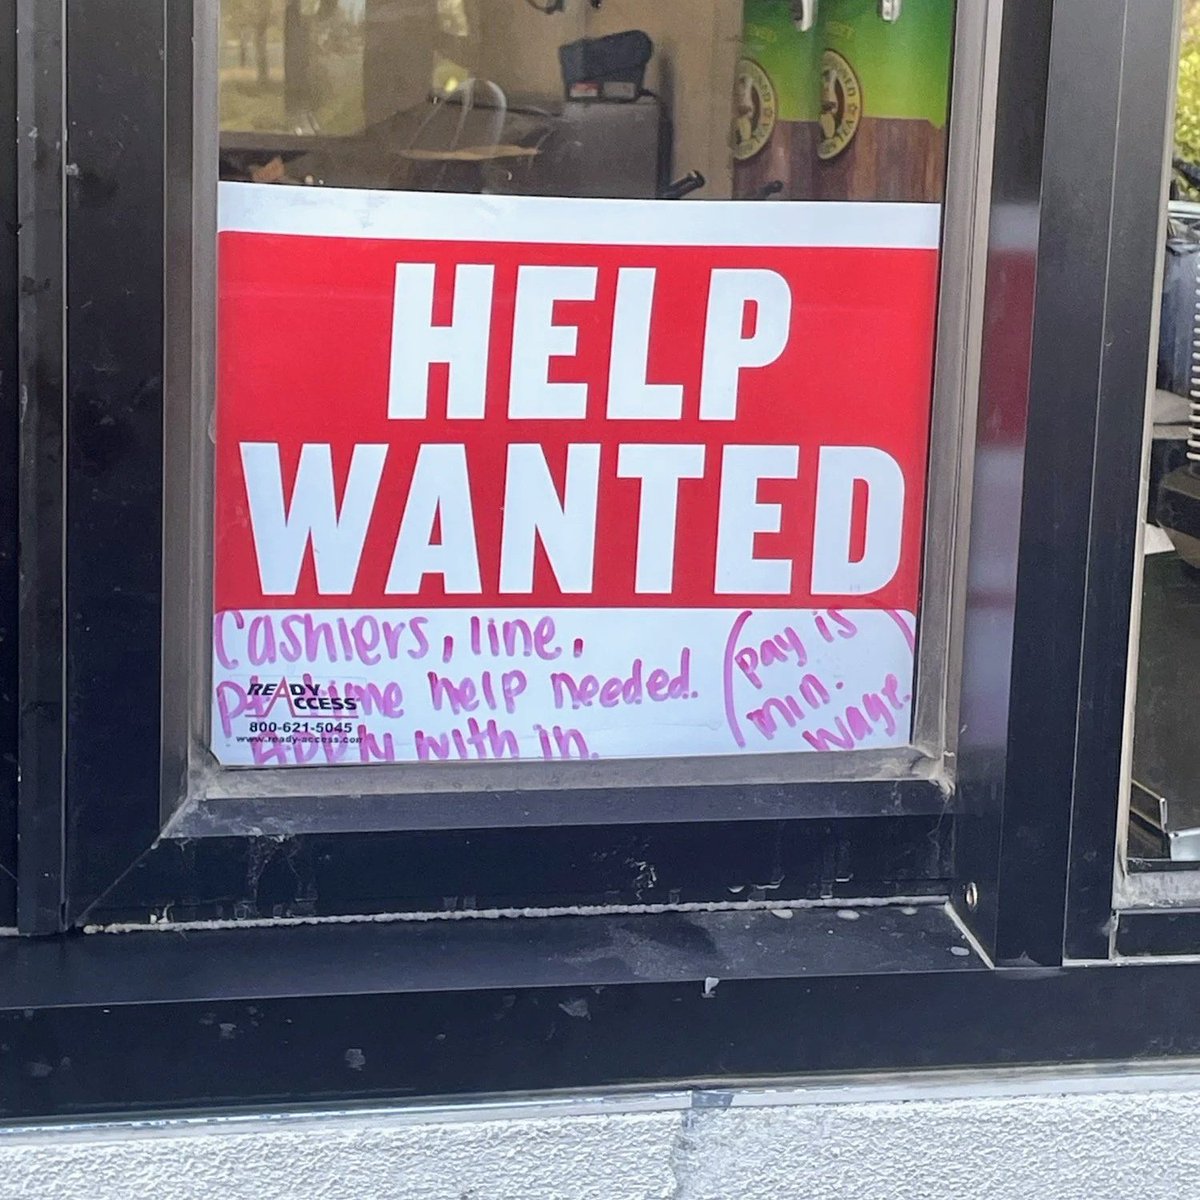 HELP
WANTED
Cashiers, line,
time help needed. (pay is
min.
wage.)
READY
ACCESS
800-621-5045
www.ready-access.com
Apply with in.